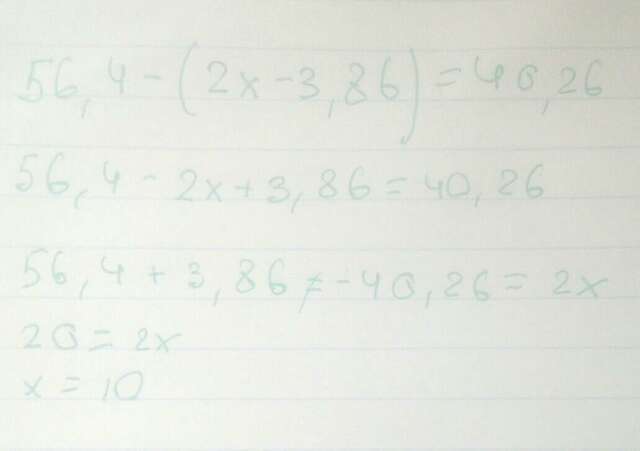 56,4 - (2x - 3,86) = 40,26
56,4 - 2x + 3,86 = 40,26
56,4 + 3,86 - 40,26 = 2x
20 = 2x
x = 10